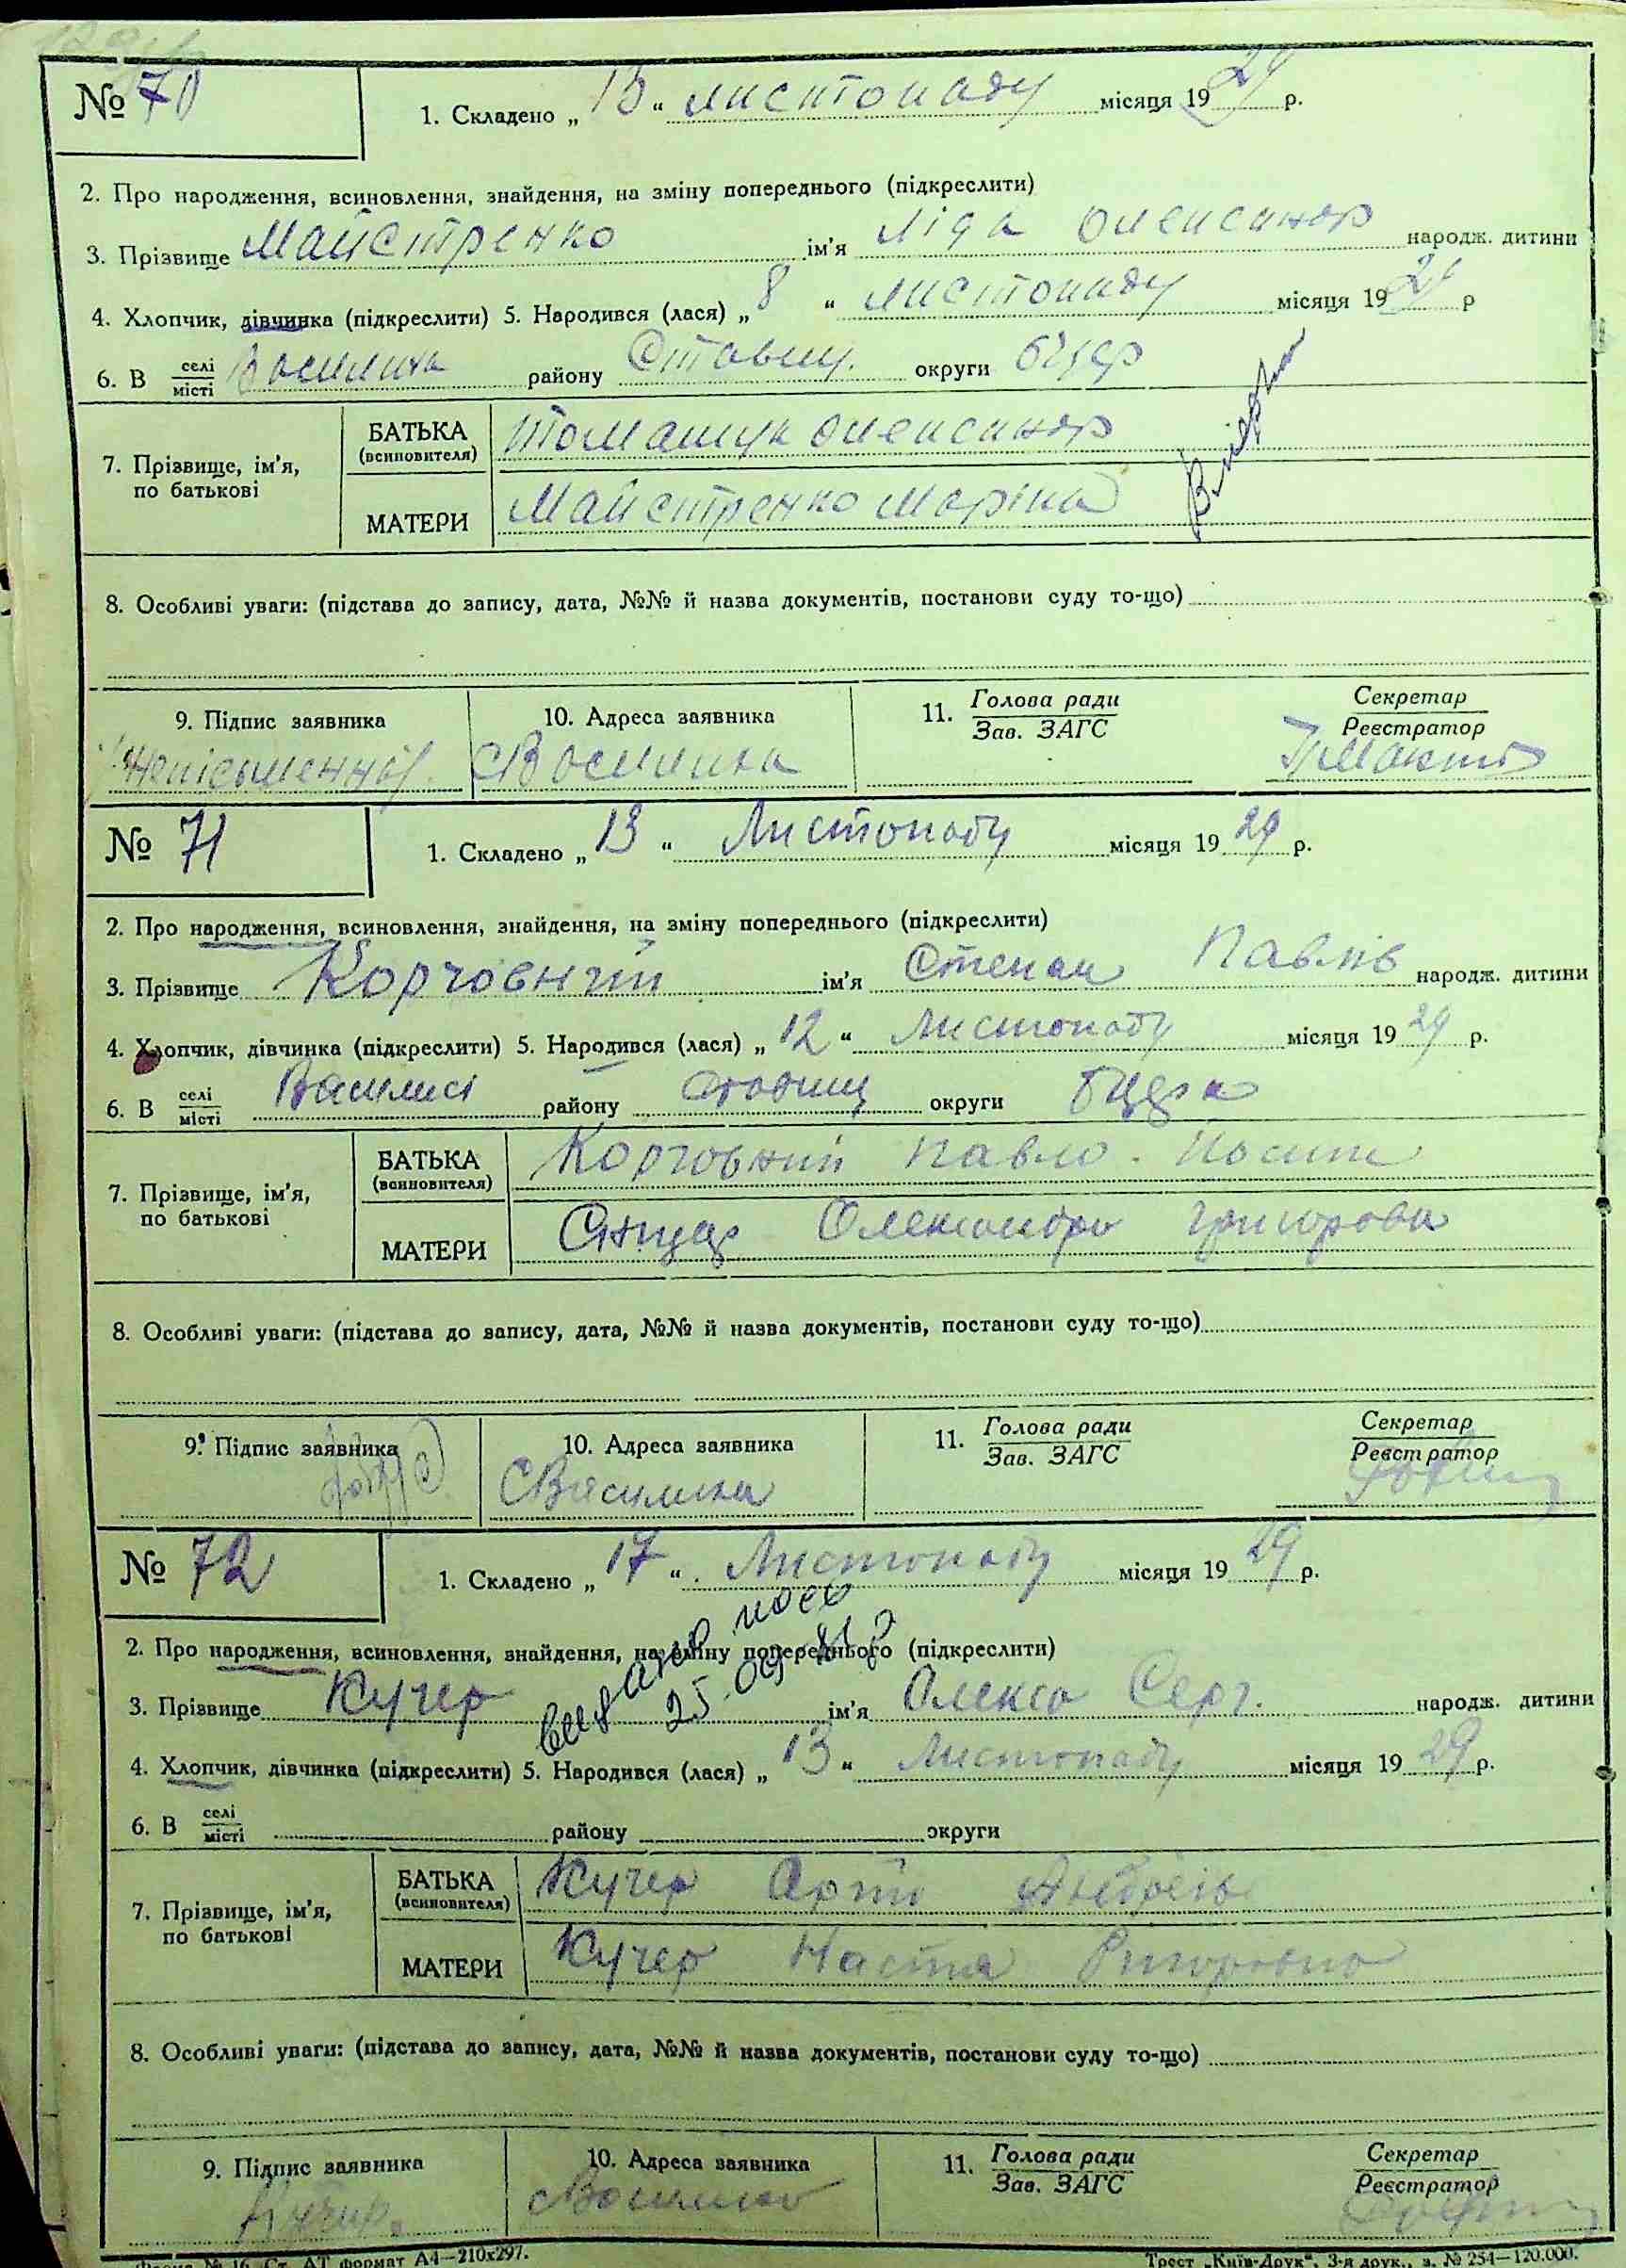 № 70
1. Складено „ 13 “ листопаду місяця 1929 р.
2. Про народження, всиновлення, знайдення, на зміну попереднього (підкреслити)
3. Прізвище Майстренко ім'я Ліда Олександр народж. дитини
4. Хлопчик, дівчинка (підкреслити) 5. Народився (лася) „ 8 “ листопаду місяця 1929 р
6. В селі/місті Василиха району Ставищ. округи Бцер
7. Прізвище, ім'я, по батькові
БАТЬКА (всиновителя) Томащук Олександр
МАТЕРИ Майстренко Маріна
8. Особливі уваги: (підстава до запису, дата, №№ й назва документів, постанови суду то-що)
9. Підпис заявника
10. Адреса заявника
11. Голова ради
Зав. ЗАГС
Секретар
Реєстратор
неписьменна С Василиха
№ 71
1. Складено „ 13 “ Листопаду місяця 1929 р.
2. Про народження, всиновлення, знайдення, на зміну попереднього (підкреслити)
3. Прізвище Корчовний ім'я Степан Павлів народж. дитини
4. Хлопчик, дівчинка (підкреслити) 5. Народився (лася) „ 12 “ Листопаду місяця 1929 р.
6. В селі/місті району округи
7. Прізвище, ім'я, по батькові
БАТЬКА (всиновителя) Корчовний Павло Йосип
МАТЕРИ Олександра Григорова
8. Особливі уваги: (підстава до запису, дата, №№ й назва документів, постанови суду то-що)
9. Підпис заявника
10. Адреса заявника
11. Голова ради
Зав. ЗАГС
Секретар
Реєстратор
С Василиха
№ 72
1. Складено „ 17 “ Листопаду місяця 1929 р.
2. Про народження, всиновлення, знайдення, на зміну попереднього (підкреслити)
3. Прізвище Кучер ім'я Олекса Серг. народж. дитини
4. Хлопчик, дівчинка (підкреслити) 5. Народився (лася) „ 13 “ Листопаду місяця 1929 р.
6. В селі/місті району округи
7. Прізвище, ім'я, по батькові
БАТЬКА (всиновителя) Кучер
МАТЕРИ Кучер Настя
8. Особливі уваги: (підстава до запису, дата, №№ й назва документів, постанови суду то-що)
9. Підпис заявника
10. Адреса заявника
11. Голова ради
Зав. ЗАГС
Секретар
Реєстратор
Форма № 16. Ст. АТ формат А4—210х297.
Трест „Київ-Друк“, 3-я друк., з. № 254—120.000.